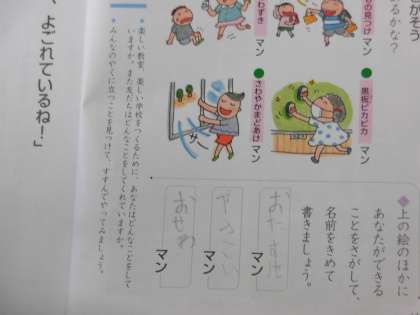 かう
るかな？
もの見つけ マン
わずき マン
黒板ピカピカ マン
さわやかまどあけ マン
サー
◆上の絵のほかに
あなたができる
ことをさがして、
名前をきめて
書きましょう。
マン
やさしい
マン
おせわ
マン
楽しい教室、楽しい学校をつくるために、あなたはどんなことをして
いますか。また友だちはどんなことをしてくれていますか。
みんなのやくに立つことを見つけて、すすんでやってみましょう。
、よごれているね！」